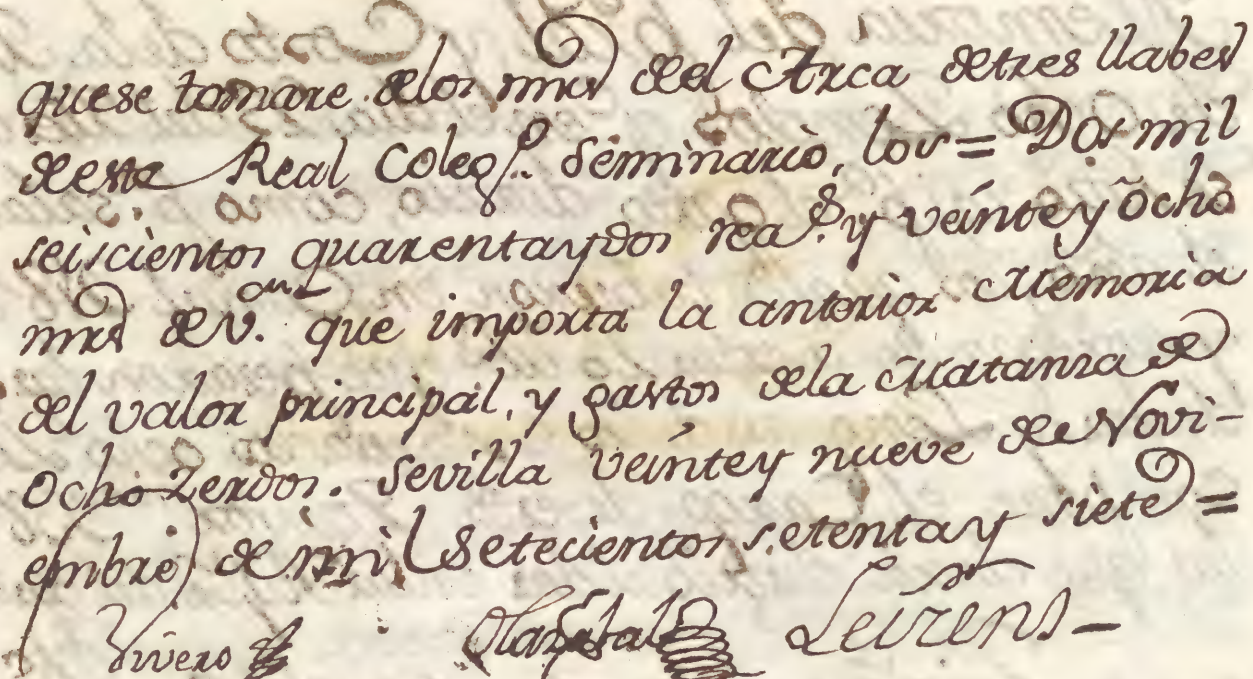 quese tomare delos mrs del Arca detres llabes
deeste Real Colegº. Seminario, los = Dos mil
seiscientos quarentaydos reas. y veinteyocho
mrs de v.on que importa la anterior Memoria
del valor principal, y gastos dela Matanza de
ocho Zerdos. Sevilla veintey nueve de Novi-
embre de mil Setecientos setentay siete =
Vivero Leirens